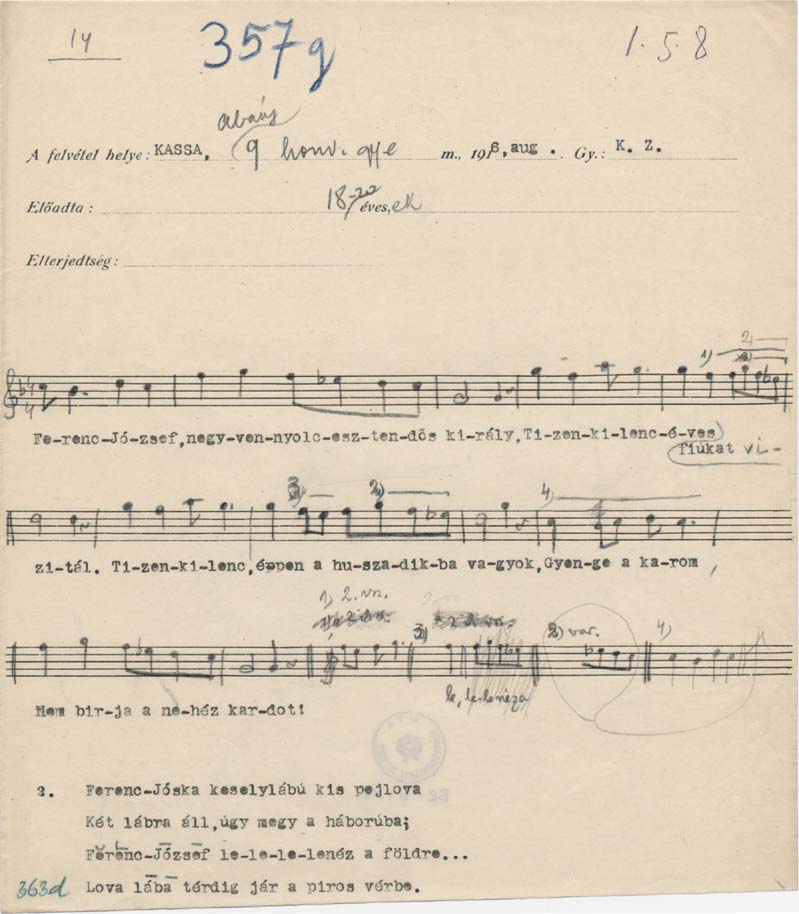 14 357g 1.5.8
abaúj
A felvétel helye: KASSA, 9 honv. gye m., 1916, aug. Gy.: K. Z.
Előadta: 18-20 éves,ek
Elterjedtség:
1) 2)
Fe-renc-Jó-zsef,negy-ven-nyolc-esz-ten-dős ki-rály,Ti-zen-ki-lenc-é-ves
fiúkat vi-
3) 2) 4)
zi-tál. Ti-zen-ki-lenc,éppen a hu-sza-dik-ba va-gyok,Gyen-ge a ka-rom,
1) 2. vn.
3) 2) var. 4)
le, le-lenéz a
Nem bir-ja a ne-héz kar-dot!
2. Ferenc-Jóska keselylábú kis pejlova
Két lábra áll,úgy megy a háborúba;
Ferenc-József le-le-le-lenéz a földre...
363d Lova lába térdig jár a piros vérbe.